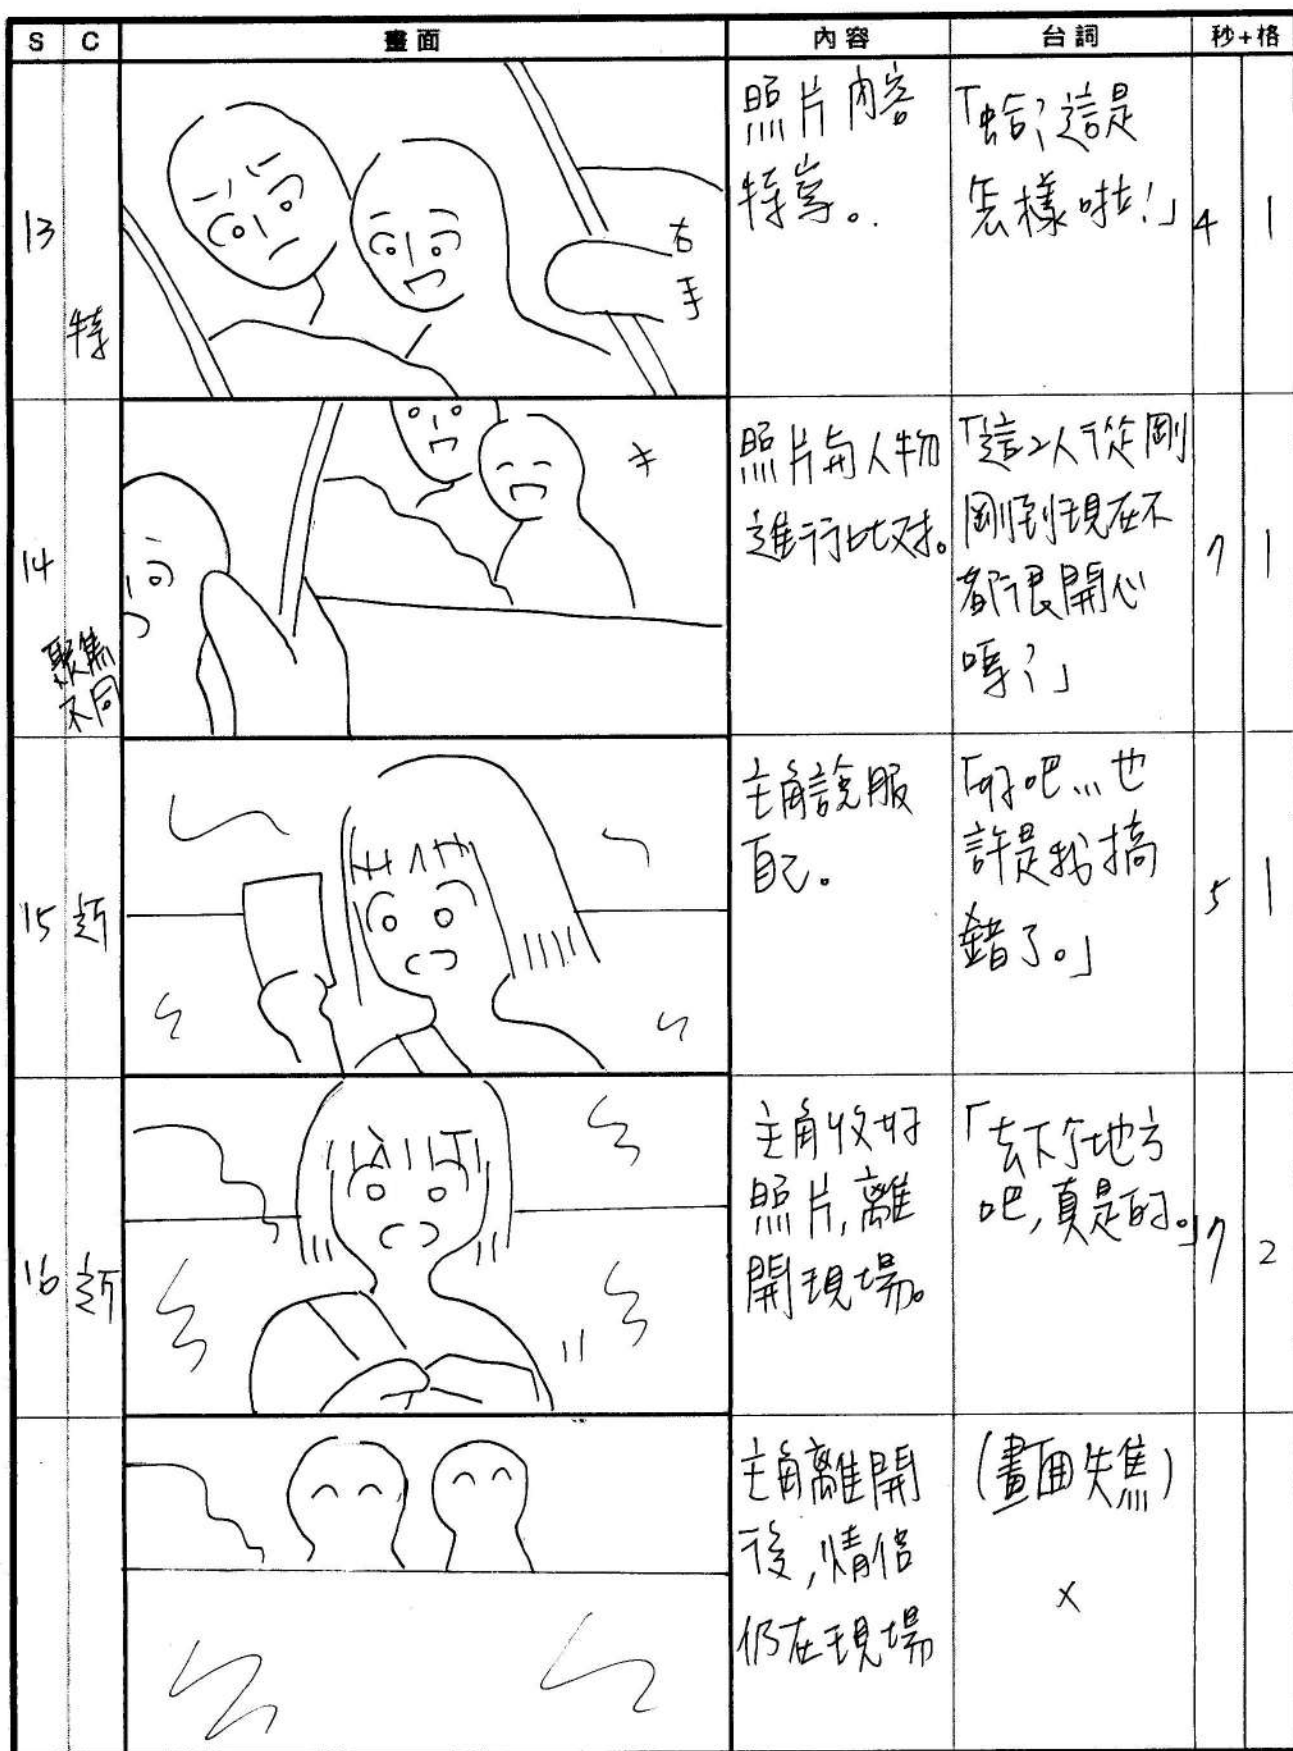 S C 畫面 內容 台詞 秒+格
13
特
右
手
照片內容
特寫。
「蛤?這是
怎樣啦!」
4 1
14
聚焦
不同
照片與人物
進行比对。
「這2人從剛
剛到現在不
都很開心
嗎?」
7 1
15 近
主角說服
自己。
「好吧...也
許是我搞
錯了。」
5 1
16 近
主角收好
照片,離
開現場。
「去下个地方
吧,真是的。」
7 2
主角離開
後,情侶
仍在現場
(畫面失焦)
x